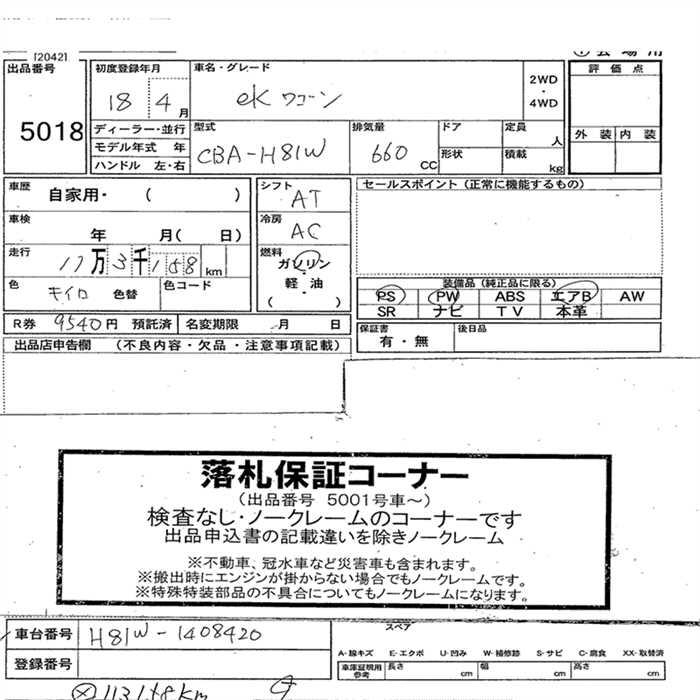 120421
出品番号
5018
初度登録年月
18 4月
車名・グレード
ek ワゴーン
2WD
・
4WD
評価点
外装 内装
ディーラー・並行
モデル年式 年
ハンドル 左・右
型式
CBA-H81W
排気量
660 CC
ドア
形状
定員
人
積載
kg
車歴
自家用・( )
車検
年 月( 日)
走行
11万3千158km
色
キイロ 色替
色コード
シフト
AT
冷房
AC
燃料
ガソリン
軽・油
( ・ )
セールスポイント (正常に機能するもの)
装備品 (純正品に限る)
PS PW ABS エアB AW
SR ナビ TV 本革
R券 9540円 預託済
名変期限 月 日
保証書
有・無
後日品
出品店申告欄 (不良内容・欠品・注意事項記載)
落札保証コーナー
(出品番号 5001号車〜)
検査なし・ノークレームのコーナーです
出品申込書の記載違いを除きノークレーム
※不動車、冠水車など災害車も含まれます。
※搬出時にエンジンが掛からない場合でもノークレームです。
※特殊特装部品の不具合についてもノークレームになります。
車台番号
H81W-1408420
登録番号
スペア
A-線キズ E-エクボ U-凹み W-補修跡 S-サビ C-腐食 XX-取替済
車庫証明用
参考
長さ cm
幅 cm
高さ cm
113158km